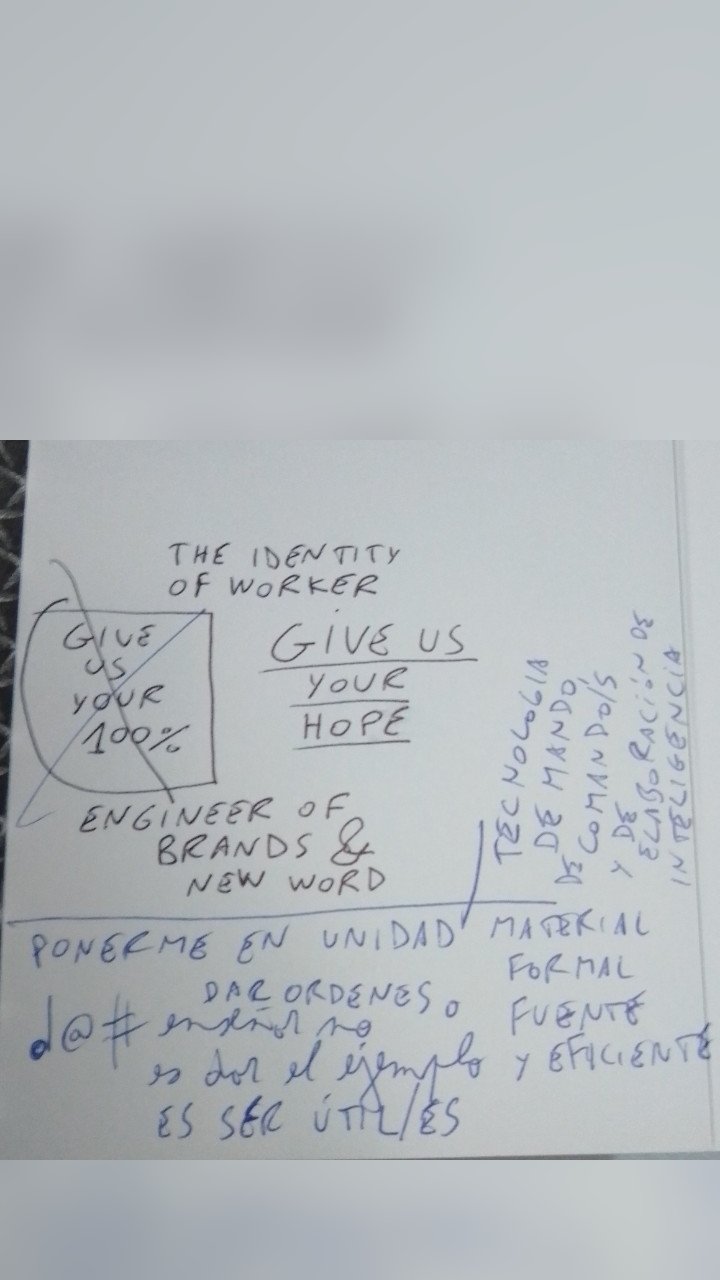 THE IDENTITY
OF WORKER
GIVE
US
YOUR
100%
GIVE US
YOUR
HOPE
ENGINEER OF
BRANDS &
NEW WORD
TECNOLOGIA
DE MANDO
DE COMANDO/S
Y DE
ELABORACIÓN DE
INTELIGENCIA
PONERME EN UNIDAD
DAR ORDENES o
d@# enseñar no
es dar el ejemplo
ES SER ÚTIL/ES
MATERIAL
FORMAL
FUENTE
Y EFICIENTE